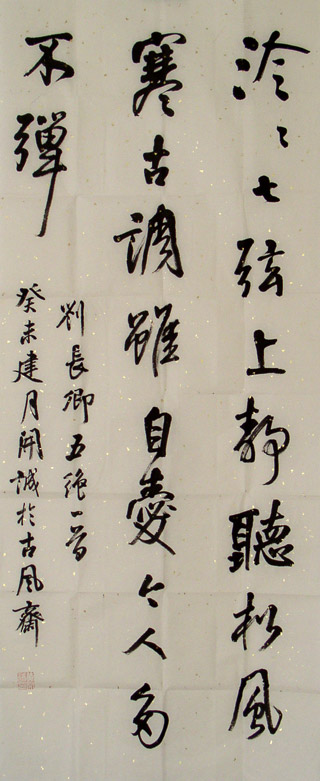 泠〻七弦上靜聽松風
寒古調雖自愛今人多
不彈
劉長卿五絕一首
癸未建月開誠於古風齋